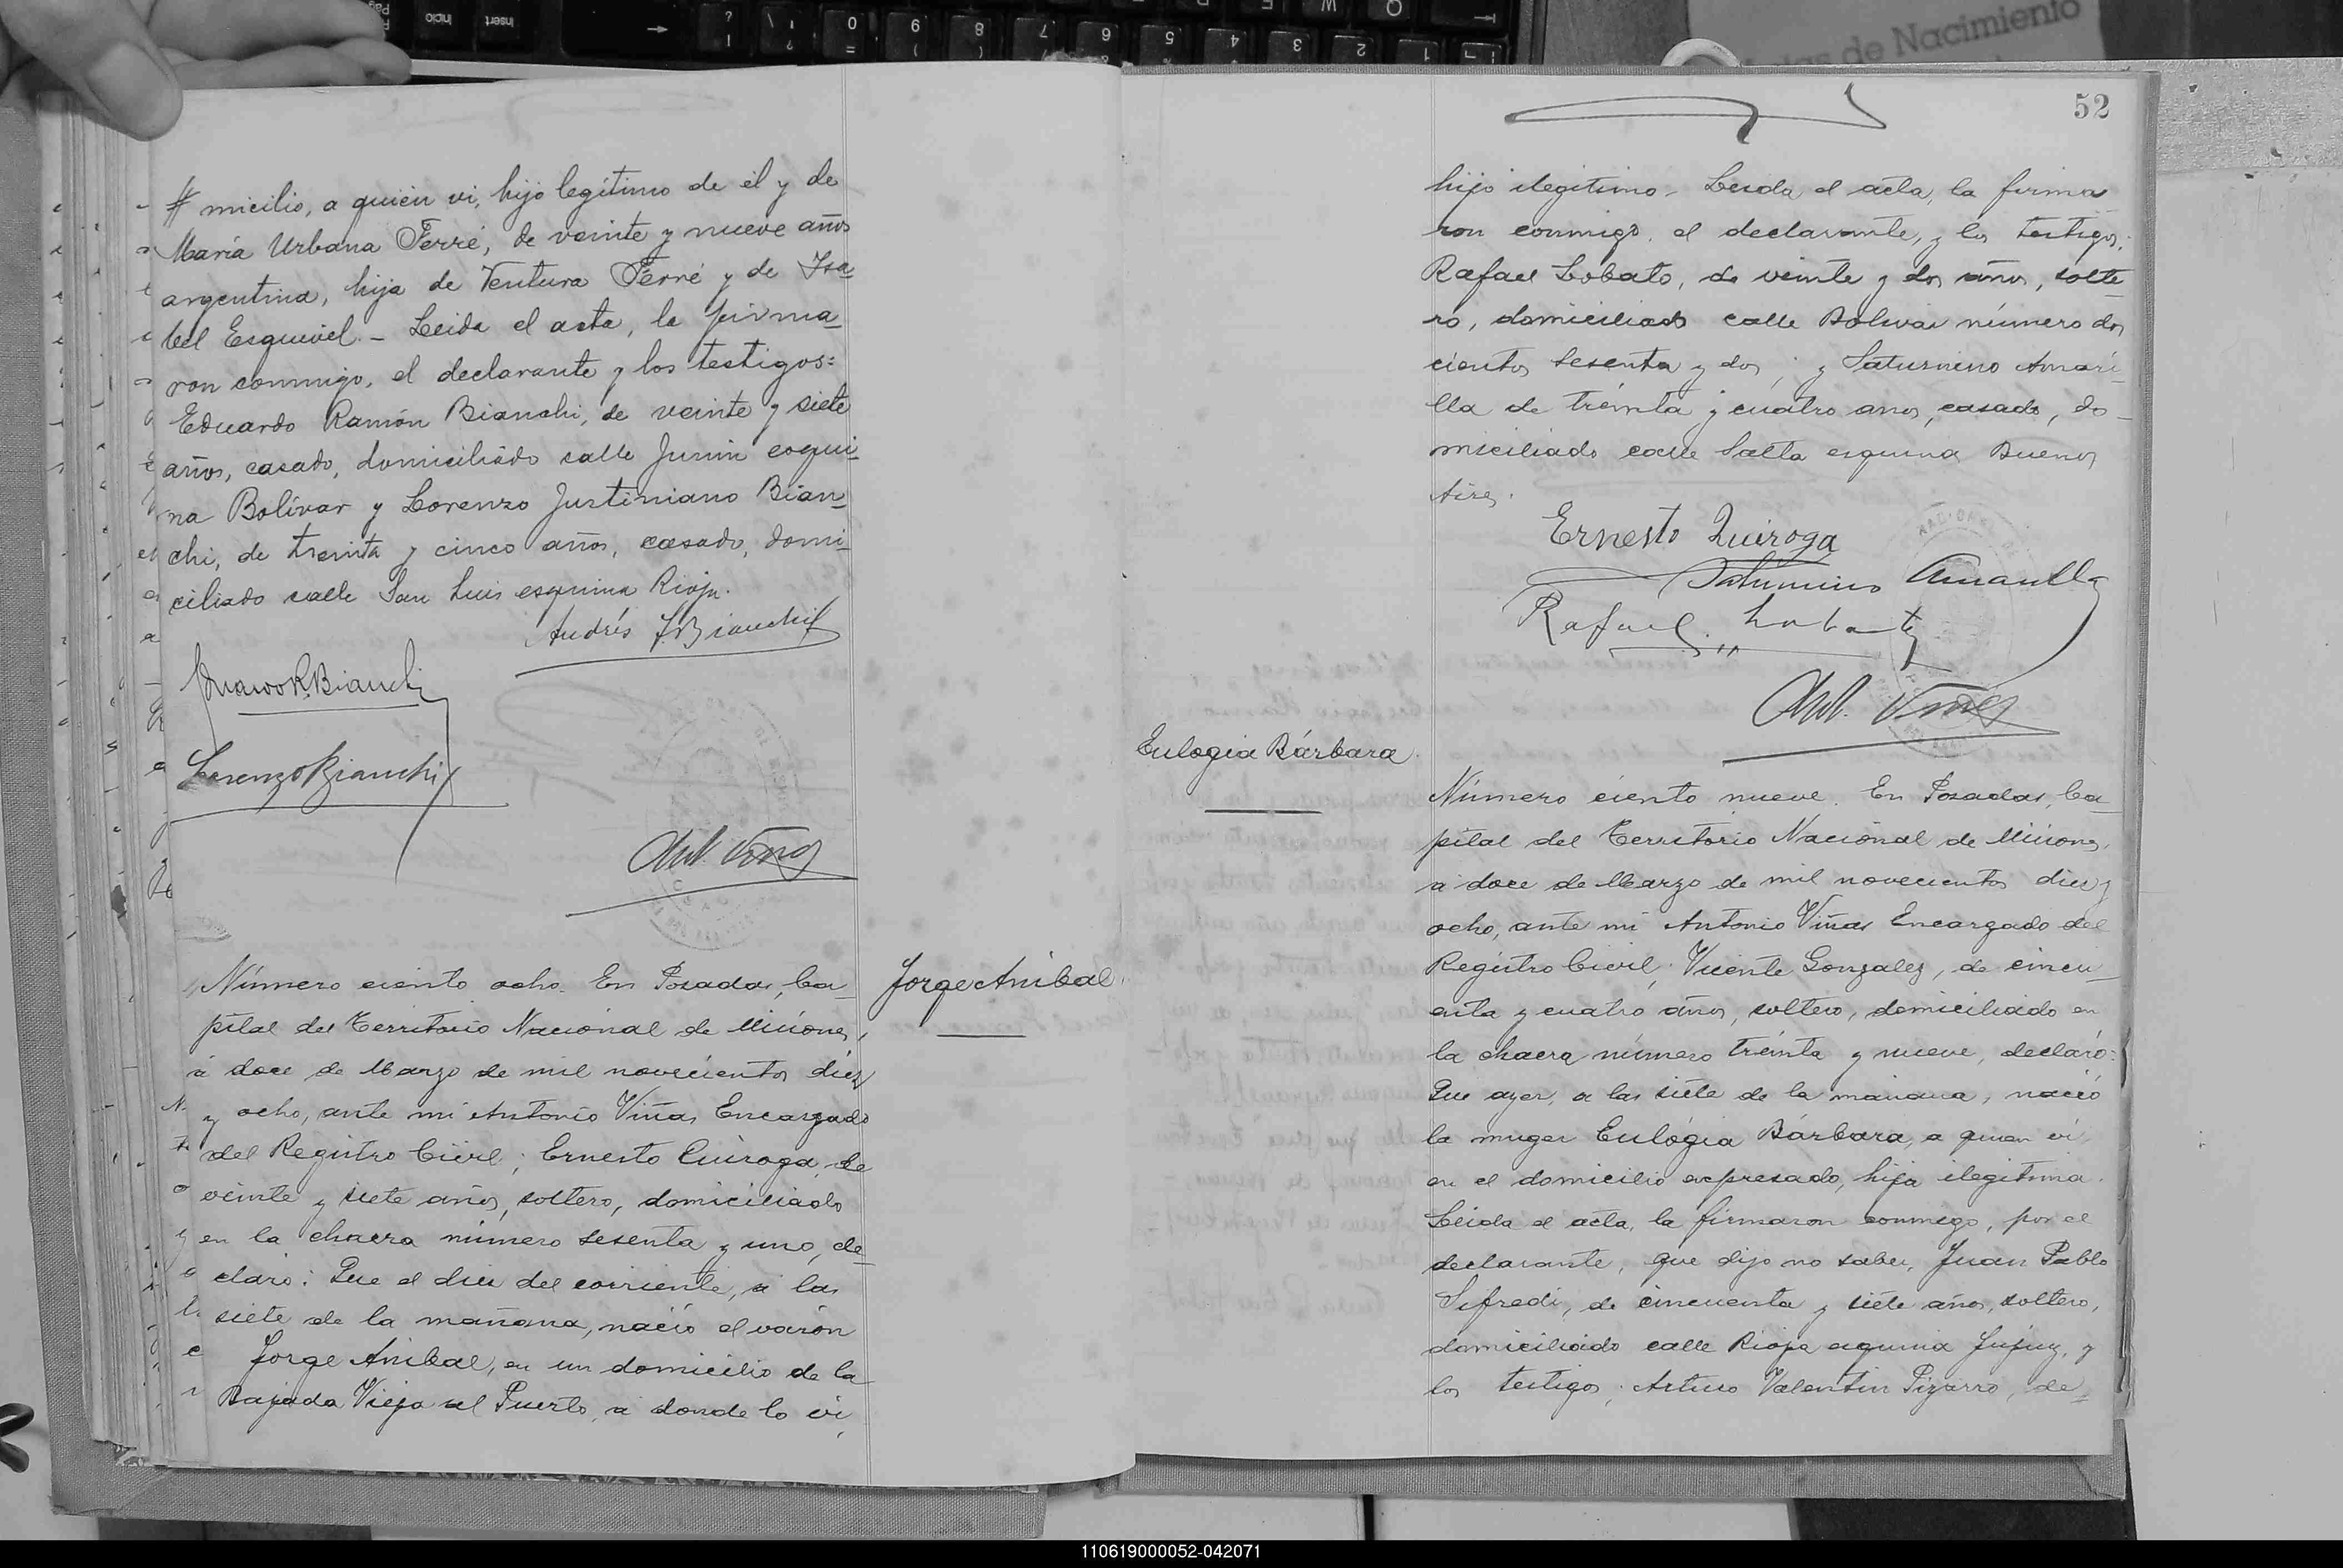 micilio, a quién vi, hijo legítimo de él y de
María Urbana Ferré, de veinte y nueve años
argentina, hija de Ventura Ferré y de Isa-
bel Esquivel. - Leida el acta, la firma-
ron conmigo, el declarante y los testigos:
Eduardo Ramón Bianchi, de veinte y siete
años, casado, domiciliado calle Junin esqui-
na Bolívar y Lorenzo Justiniano Bian-
chi, de treinta y cinco años, casado, domi-
ciliado calle San Luis esquina Rioja.
Andrés J. Bianchi
R. Bianchi
Lorenzo Bianchi
Jorge Anibal.
Número ciento ocho. En Posadas, Ca-
pital del Territorio Nacional de Misiones,
á doce de Marzo de mil novecientos diez
y ocho, ante mi Antonio Viñas Encargado
del Registro Civil; Ernesto Quiroga, de
veinte y siete años, soltero, domiciliado
en la chacra número sesenta y uno, de-
claró: Que el diez del corriente, a las
siete de la mañana, nació el varón
Jorge Anibal, en un domicilio de la
Bajada Vieja al Puerto, a donde lo vi,
52
hijo ilegítimo. Leida el acta, la firma
ron conmigo, el declarante, y los testigos:
Rafael Lobato, de veinte y dos años, solte-
ro, domiciliado calle Bolivar número dos
cientos sesenta y dos; y Saturnino Amari-
lla de treinta y cuatro anos, casado, do-
miciliado calle Salta esquina Buenos
Aires.
Ernesto Quiroga
Saturnino Amarilla
Rafael Lobato
Eulogia Bárbara.
Número ciento nueve. En Posadas, Ca-
pital del Territorio Nacional de Misiones,
a doce de Marzo de mil novecientos diez y
ocho, ante mi Antonio Viñas Encargado del
Registro Civil; Vicente Gonzalez, de cincu-
enta y cuatro años, soltero, domiciliado en
la chacra número treinta y nueve, declaró:
Que ayer, a las siete de la mañana, nació
la muger Eulógia Bárbara, a quien vi,
en el domicilio expresado, hija ilegitima.
Leida el acta, la firmaron conmigo, por el
declarante, que dijo no saber, Juan Pablo
Sifredi, de cincuenta y siete años, soltero,
domiciliado calle Rioja esquina Jujuy, y
los testigos; Arturo Valentin Pizarro, de-
110619000052-042071